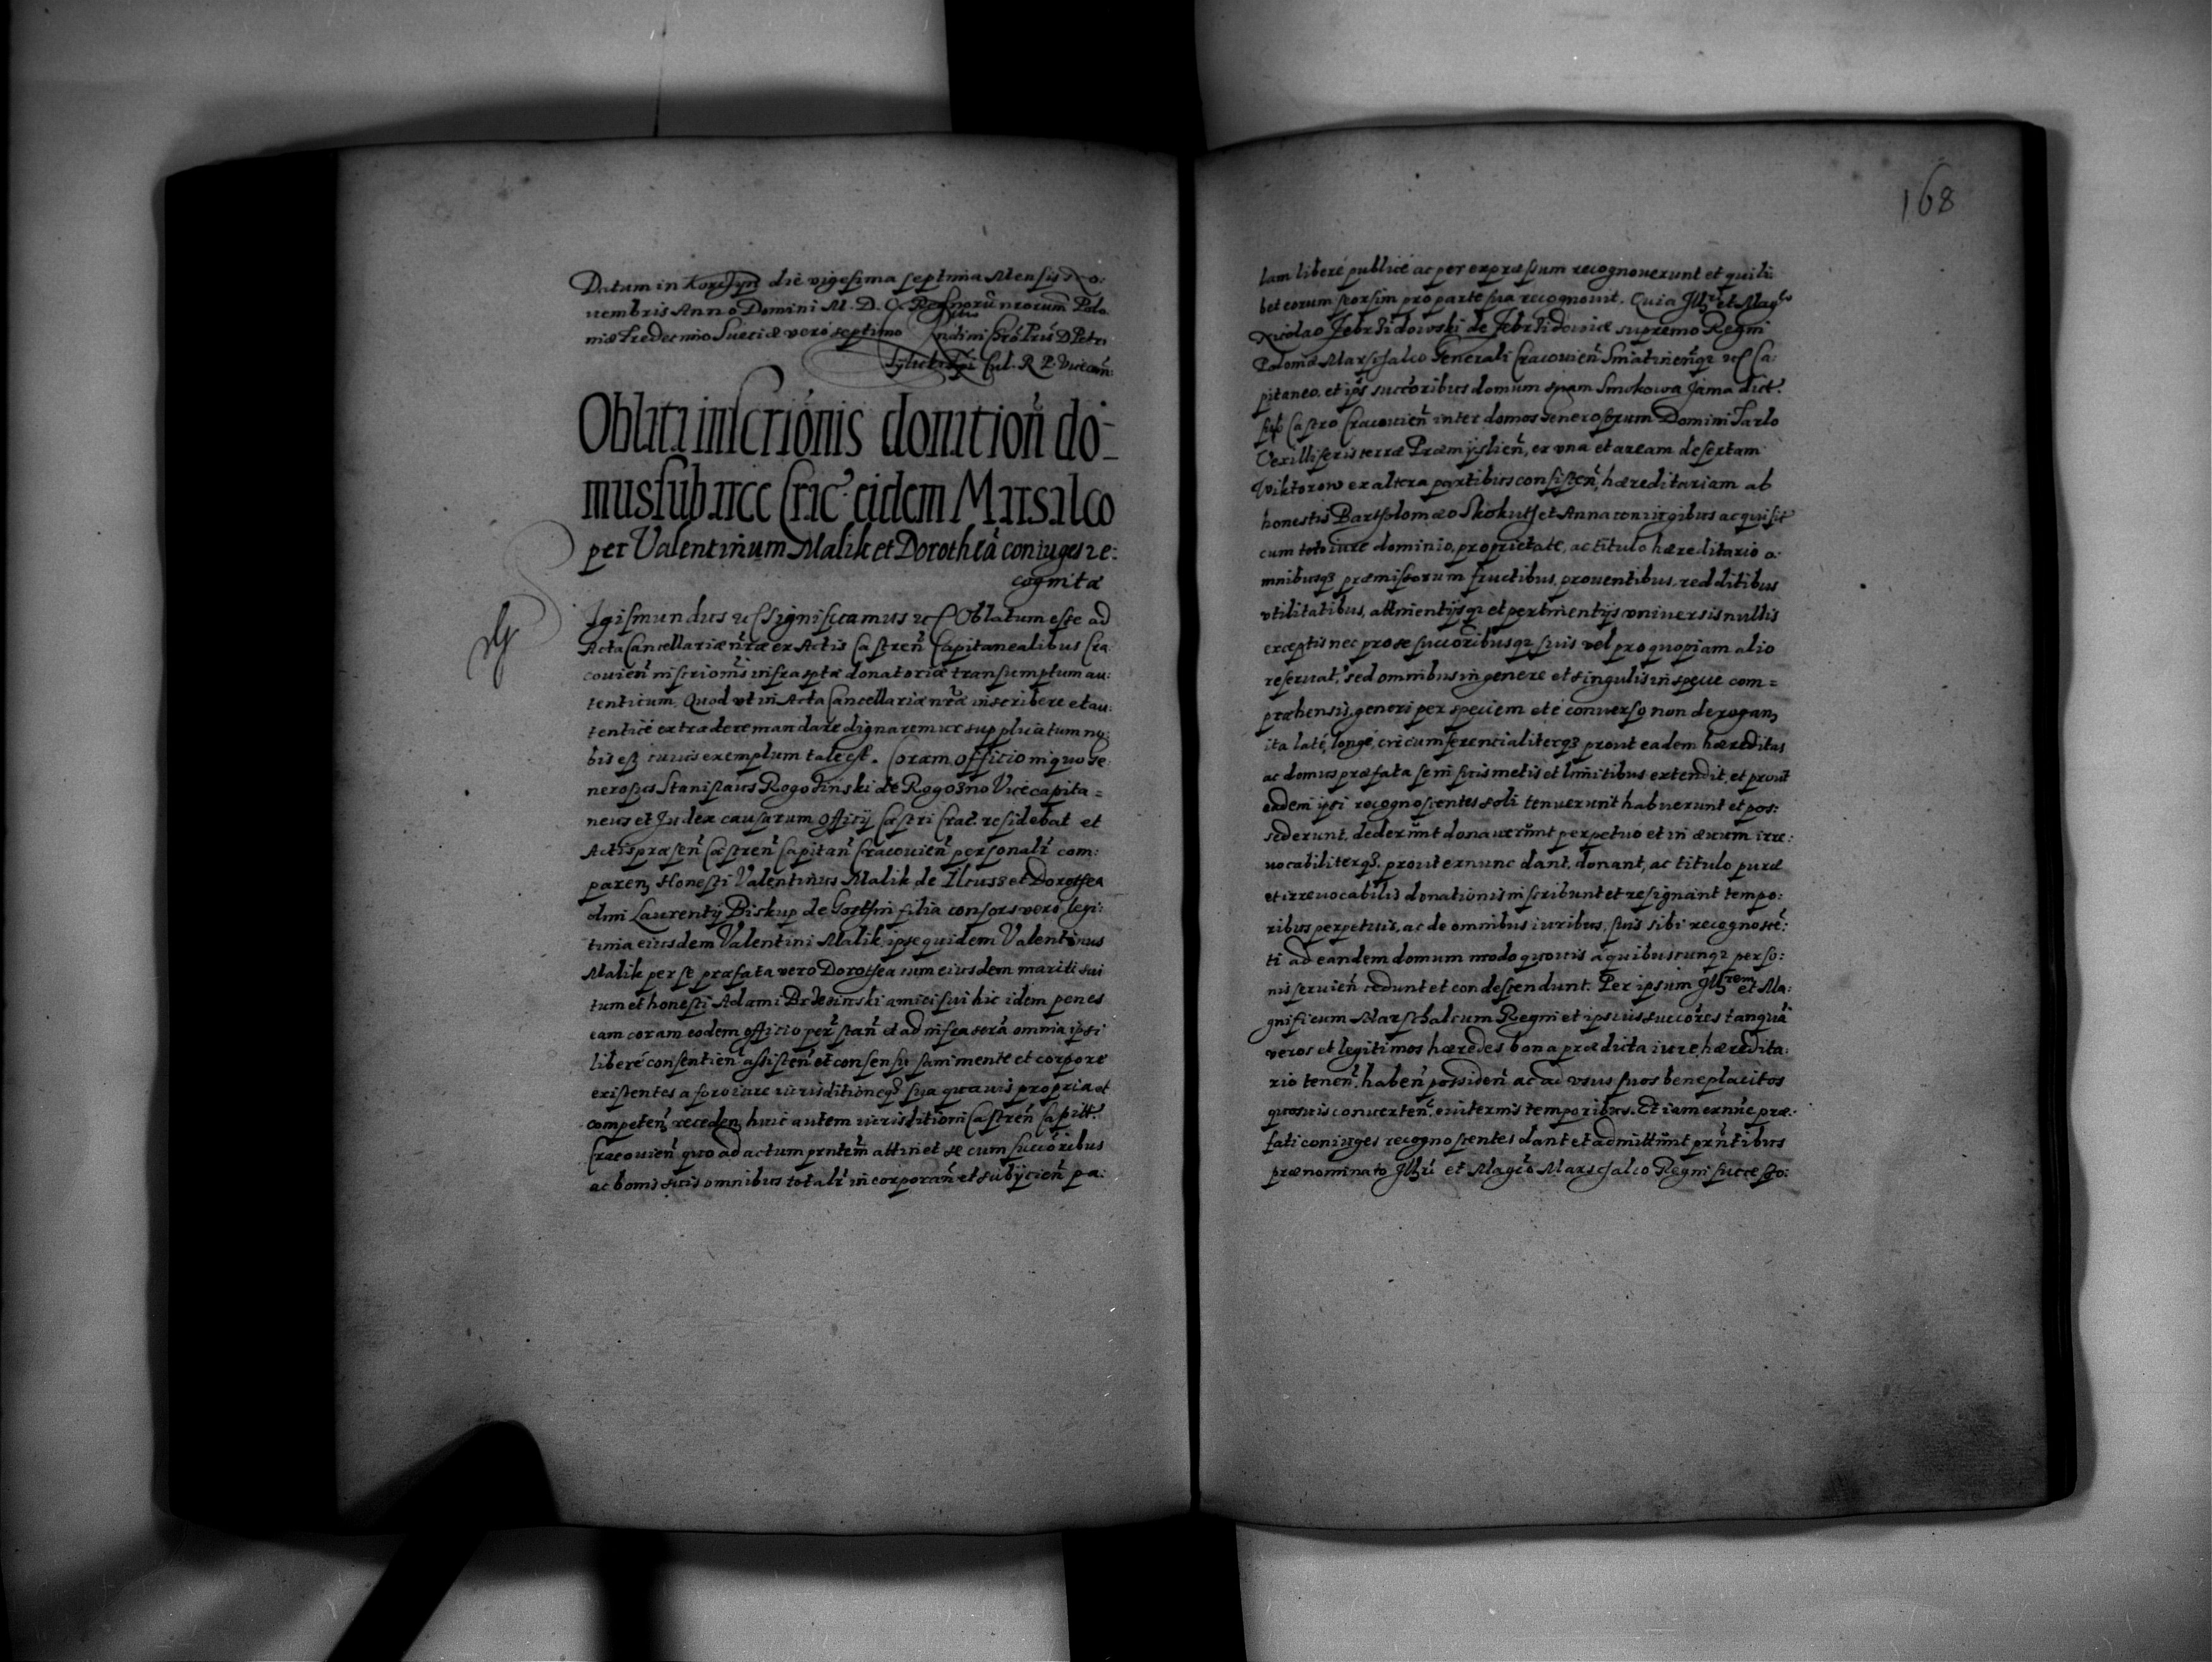 Datum in Korczyn die vigesima septima Mensis No:
uembris Anno Domini M. D. C. Regnorũ nrorum Polo
niæ Tredecimo Sueciæ vero septimo
Tylicki Epi Cul. R. P. Vicecan:
Oblata inscriónis donation̄ do-
mus sub arce Crac: eidem Marsalco
per Valentinum Malik et Dorotheã coniuges re:
cognitæ
Igismundus &c Significamus &c Oblatum esse ad
Acta Cancellariæ nræ ex Actis Castren̄ Capitanealibus Cra
couien̄ inscrionis infrasptæ donatoriæ transumptum au:
tenticum, Quod vt in Acta Cancellariæ nræ inscribere et au:
tenticè extradere mandare dignaremur supplicatum no:
bis est cuius exemplum tale est. Coram officio in quo Ge:
nerosus Stanislaus Rogoziński de Rogozno Vicecapita=
neus et Judex causarum officij Castri Crac. residebat et
Actis præsen̄ Castren̄ Capitan̄ Cracouien̄ personalr̄ com:
paren̄ Honesti Valentinus Malik de Ilcuss et Dorothea
olim Laurentij Biskup de Gosthin filia consors vero legi:
tima eiusdem Valentini Malik, ipse quidem Valentinus
Malik per se præfata vero Dorothea cum eiusdem mariti sui
tum et honesti Adami Brzezinski amici sui hic idem penes
eam coram eodem officio per stan̄ et ad infrascrã omnia ipsi
liberè consentien̄ assisten̄ et consensu sani mente et corpore
existentes a foro iure iurisditioneq; sua quauis propria et
competen̄ receden̄, huic autem iurisditioni Castren̄ Capitt.
Cracouien̄ quo ad actum prntem attinet se cum succoribus
ac bonis suis omnibus totalr̄ incorporan̄ et subijcien̄ pa:
168
lam liberè publicè ac per expræssum recognouerunt et quili
bet eorum seorsim pro parte sua recognouit. Quia Illr̄i et Mag^co
Nicolao Zebrzidowski de Zebrzidowice supremo Regni
Poloniæ Marschalco Generali Cracouien̄ Sniatinen̄q; &c Ca:
pitaneo, et ipš succoribus domum spam Smokowa Jama dict.
sub Castro Cracouien̄ inter domos Generosorum Domini Tarlo
Vexilliferis terræ Præmyslien̄, ex vna et aream desertam
Wiktorow ex altera partibus consisten̄, hæreditariam ab
honestis Bartholomæo Skokuth et Anna coniugibus acquisit
cum toto iure dominio, proprietate, ac titulo hæreditario o:
mnibusq; præmissorum fructibus, prouentibus, redditibus
vtilitatibus, attinentijsq; et pertinentijs vniuersis nullis
exceptis nec pro se succoribusq; suis vel pro quopiam alio
reseruat, sed omnibus in genere et singulis in specie com=
præhensis, generi per speciem et è conuerso non derogan̄,
ita latè, longè, circumferencialiterq; prout eadem hæreditas
ac domus præfata se in suis metis et limitibus extendit, et prout
eadem ipsi recognoscentes soli tenuerunt habuerunt et pos:
sederunt, dederunt donauerunt perpetuò et in æuum irre:
uocabiliterq;, prout ex nunc dant, donant, ac titulo puræ
et irreuocabilis donationis inscribunt et resignant tempo:
ribus perpetuis, ac de omnibus iuribus, suis sibi recognoscē:
ti ad eandem domum modo quouis a quibuscunq; perso:
nis seruien̄ cedunt et condescendunt. Per ipsum Illr^em et Ma:
gnificum Marschalcum Regni et ipsius succores tanquã
veros et legitimos hæredes bona prædicta iure hæredita:
rio tenen̄, haben̄ possiden̄ ac ad vsus suos beneplacitos
quosuis conuerten̄, euiternis temporibus. Et iam exnūc præ:
fati coniuges recognoscentes dant et admittunt prn̄tibus
prænominato Illr̄i et Magco Marschalco Regni successo: